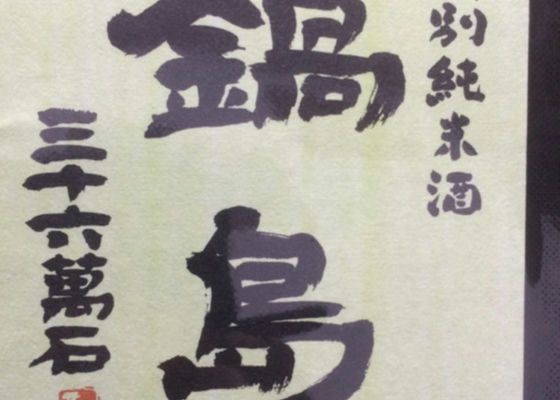 別純米酒
鍋島
三十六萬石